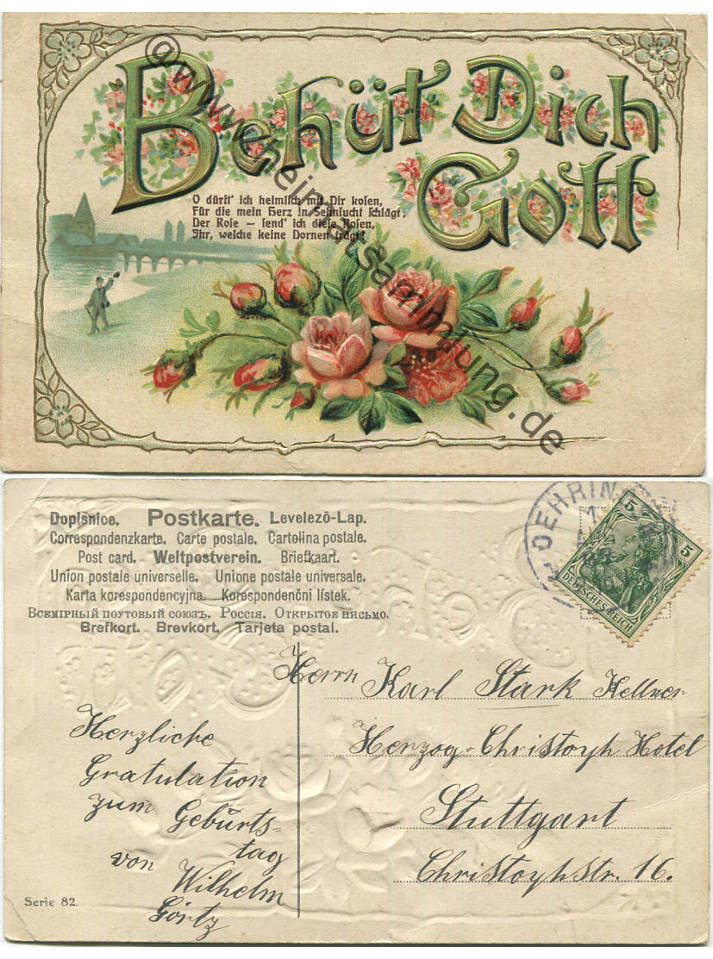 Behüt Dich
Gott
O dürft' ich heimlich mit Dir kosen,
Für die mein Herz in Sehnsucht schlägt;
Der Rose – send' ich diese Rosen,
Ihr, welche keine Dornen trägt!
@www.heimatsammlung.de
Dopisnice. Postkarte. Levelező-Lap.
Correspondenzkarte. Carte postale. Cartolina postale.
Post card. Weltpostverein. Briefkaart.
Union postale universelle. Unione postale universale.
Karta korespondencyjna. Korespondenční lístek.
Всемірный поутовый союзъ. Россія. Открытое письмо.
Brefkort. Brevkort. Tarjeta postal.
OEHRIN
5 5
DEUTSCHES REICH
Herrn Karl Stark Kellner
Herzog-Christoph Hotel
Stuttgart
Christophstr. 16.
Herzliche
Gratulation
zum Geburts-
tag
von Wilhelm
Görtz
Serie 82.